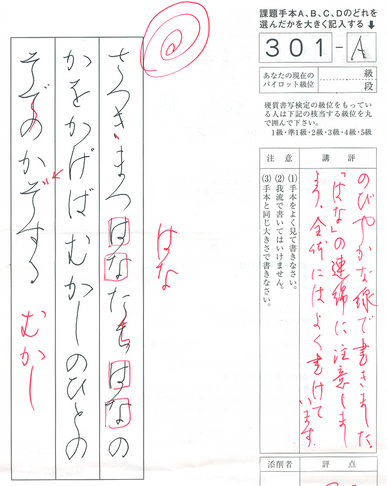 課題手本A、B、C、Dのどれを
選んだかを大きく記入する
301-A
あなたの現在の
パイロット級位
級
段
硬質書写検定の級位をもってい
る人は下記の該当する級位を丸
で囲んで下さい。
1級・準1級・2級・3級・4級・5級
講評
のびやかな線で書きました
「はな」の連綿に注意しまし
ょう。全体にはよく書けて
います。
注意
(1)手本をよく見て書きなさい。
(2)我流で書いてはいけません。
(3)手本と同じ大きさで書きなさい。
評点
添削者
はな
さつきまつはなたちはなの
かをかげばむかしのひとの
そでのかぞする
むかし